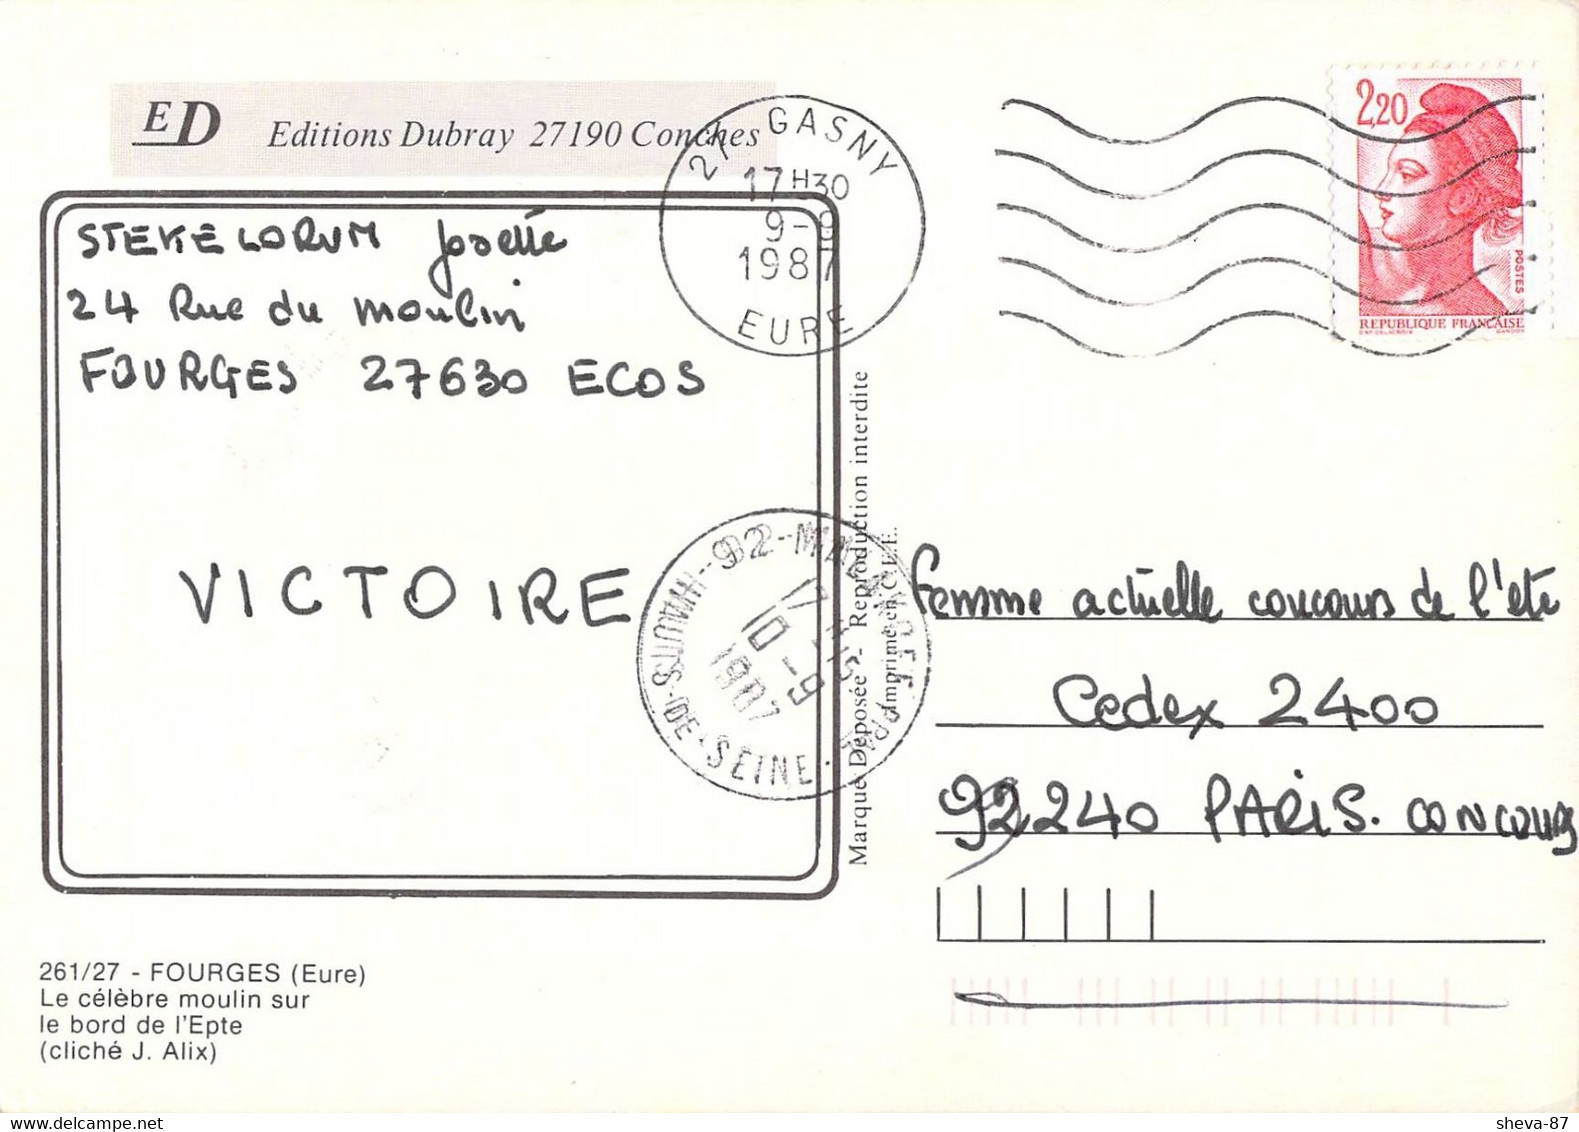 ED Editions Dubray 27190 Conches
27 GASNY
17H30
9-9
1987
EURE
2,20
POSTES
REPUBLIQUE FRANÇAISE
D'AP. DELACROIX GANDON
STEKELORUM Josette
24 Rue du moulin
FOURGES 27630 ECOS
VICTOIRE
92-MALAKOFF PPAL
10-9
1987
HAUTS-DE-SEINE
Marque Déposée - Reproduction interdite
Imprimé en C.E.E.
femme actuelle concours de l'ete
Cedex 2400
92240 PARIS. CONCOURS
261/27 - FOURGES (Eure)
Le célèbre moulin sur
le bord de l'Epte
(cliché J. Alix)
sheva-87